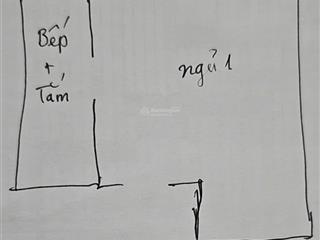 Bếp
+
Tắm
ngủ 1